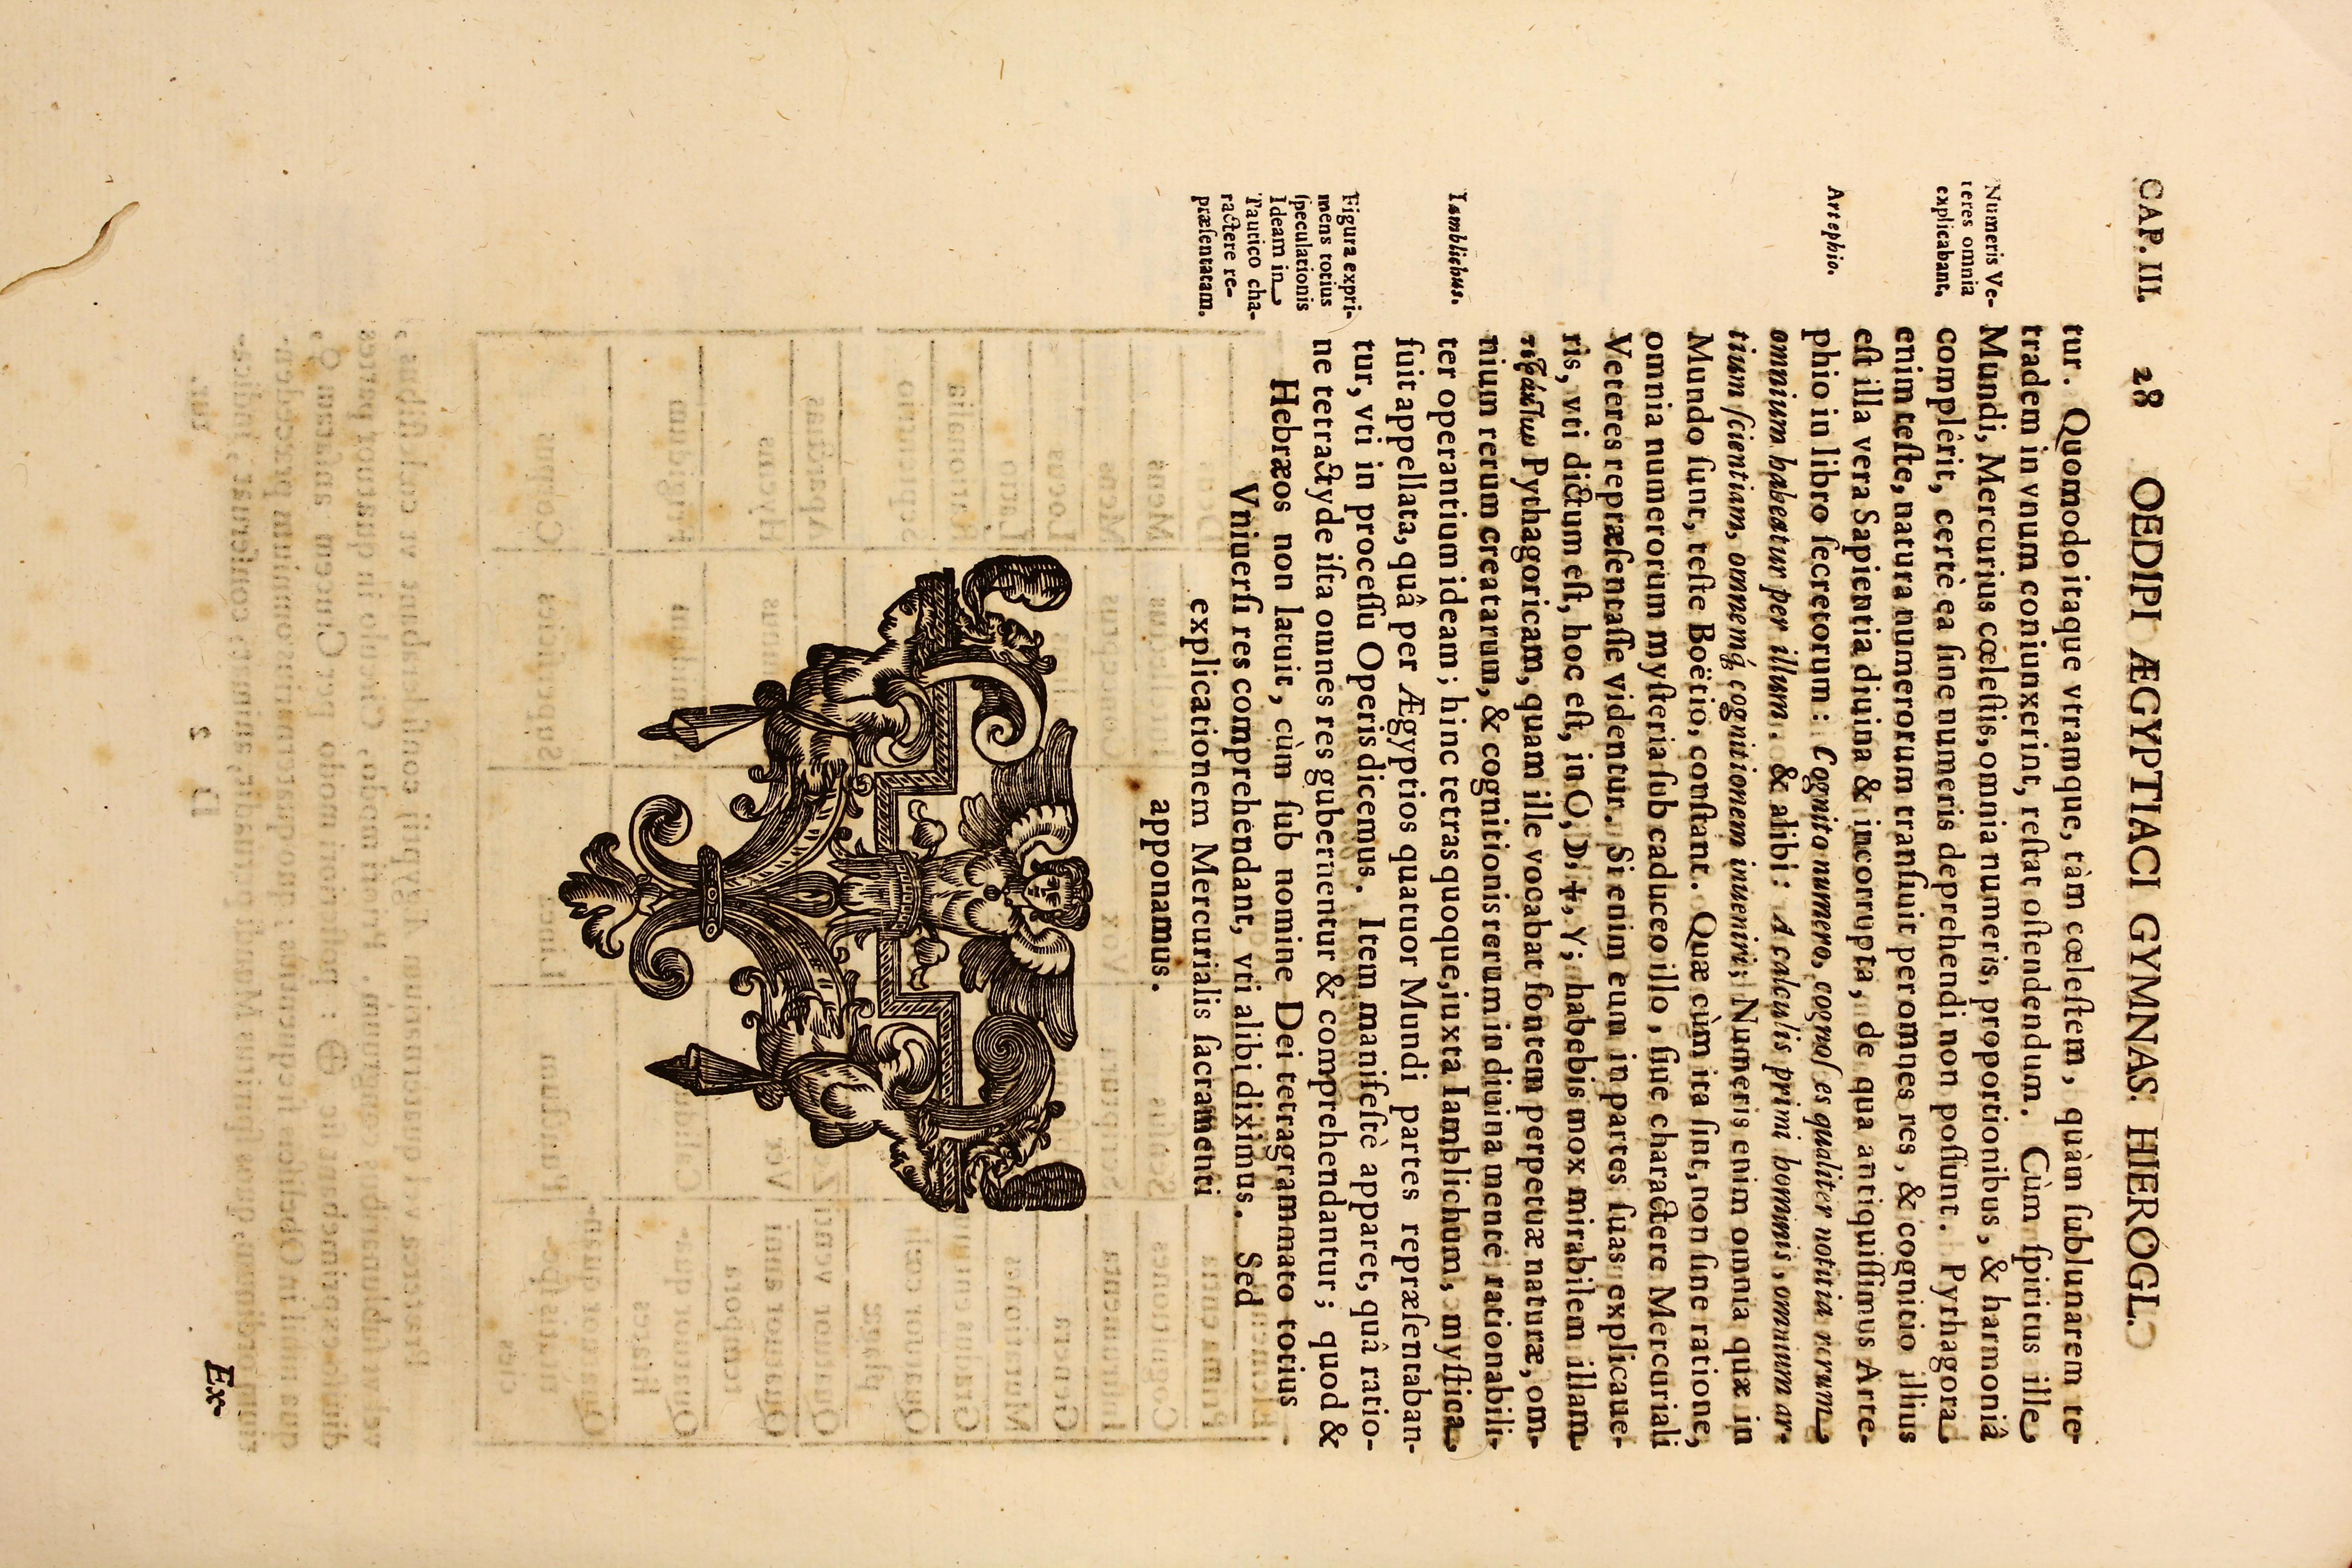 CAP. III. 28 OEDIPI ÆGYPTIACI GYMNAS: HIEROGL.
tur. Quomodo itaque vtramque, tàm cœleſtem, quàm ſublunarem te-
tradem in vnum coniunxerint, reſtat oſtendendum. Cùm ſpiritus ille
Numeris Ve-
teres omnia
explicabant.
Mundi, Mercurius cœleſtis, omnia numeris, proportionibus, & harmoniâ
complêrit, certè ea ſine numeris deprehendi non poſſunt. Pyrhagora
enim teſte, natura numerorum tranſiuit per omnes res, & cognitio illius
eſt illa vera Sapientia diuina & incorrupta, de qua antiquiſſimus Arte-
Artephio.
phio in libro ſecretorum: Cognito numero, cognoſces qualiter notitia rerum
omnium habeatur per illum. & alibi: A calculis primi hominis, omnium ar-
tium ſcientiam, omnemq́ cognitionem inueniri; Numeris enim omnia quæ in
Mundo ſunt, teſte Boëtio, conſtant. Quæ cùm ita ſint, non ſine ratione,
omnia numerorum myſteria ſub caduceo illo, ſiue charactere Mercuriali
Veteres repræſentaſſe videntur. Si enim eum in partes ſuas explicaue-
ris, vti dictum eſt, hoc eſt, in O, D, +, Y; habebis mox mirabilem illam
Pythagoricam, quam ille vocabat fontem perpetuæ naturæ, om-
nium rerum creatarum, & cognitionis rerum in diuina mente rationabili-
Iamblichus.
ter operantium ideam; hinc tetras quoque, iuxta Iamblichum, myſtica
fuit appellata, quâ per Ægyptios quatuor Mundi partes repræſentaban-
tur, vti in proceſſu Operis dicemus. Item manifeſtè apparet, quâ ratio-
Figura expri-
mens totius
ſpeculationis
Ideam in
Taurico cha-
ractere re-
præſentatam.
ne tetractyde iſta omnes res gubernentur & comprehendantur; quod &
Hebræos non latuit, cùm ſub nomine Dei tetragrammato totius
Vniuerſi res comprehendant, vti alibi diximus. Sed
explicationem Mercurialis ſacramenti
apponamus.
Ex-